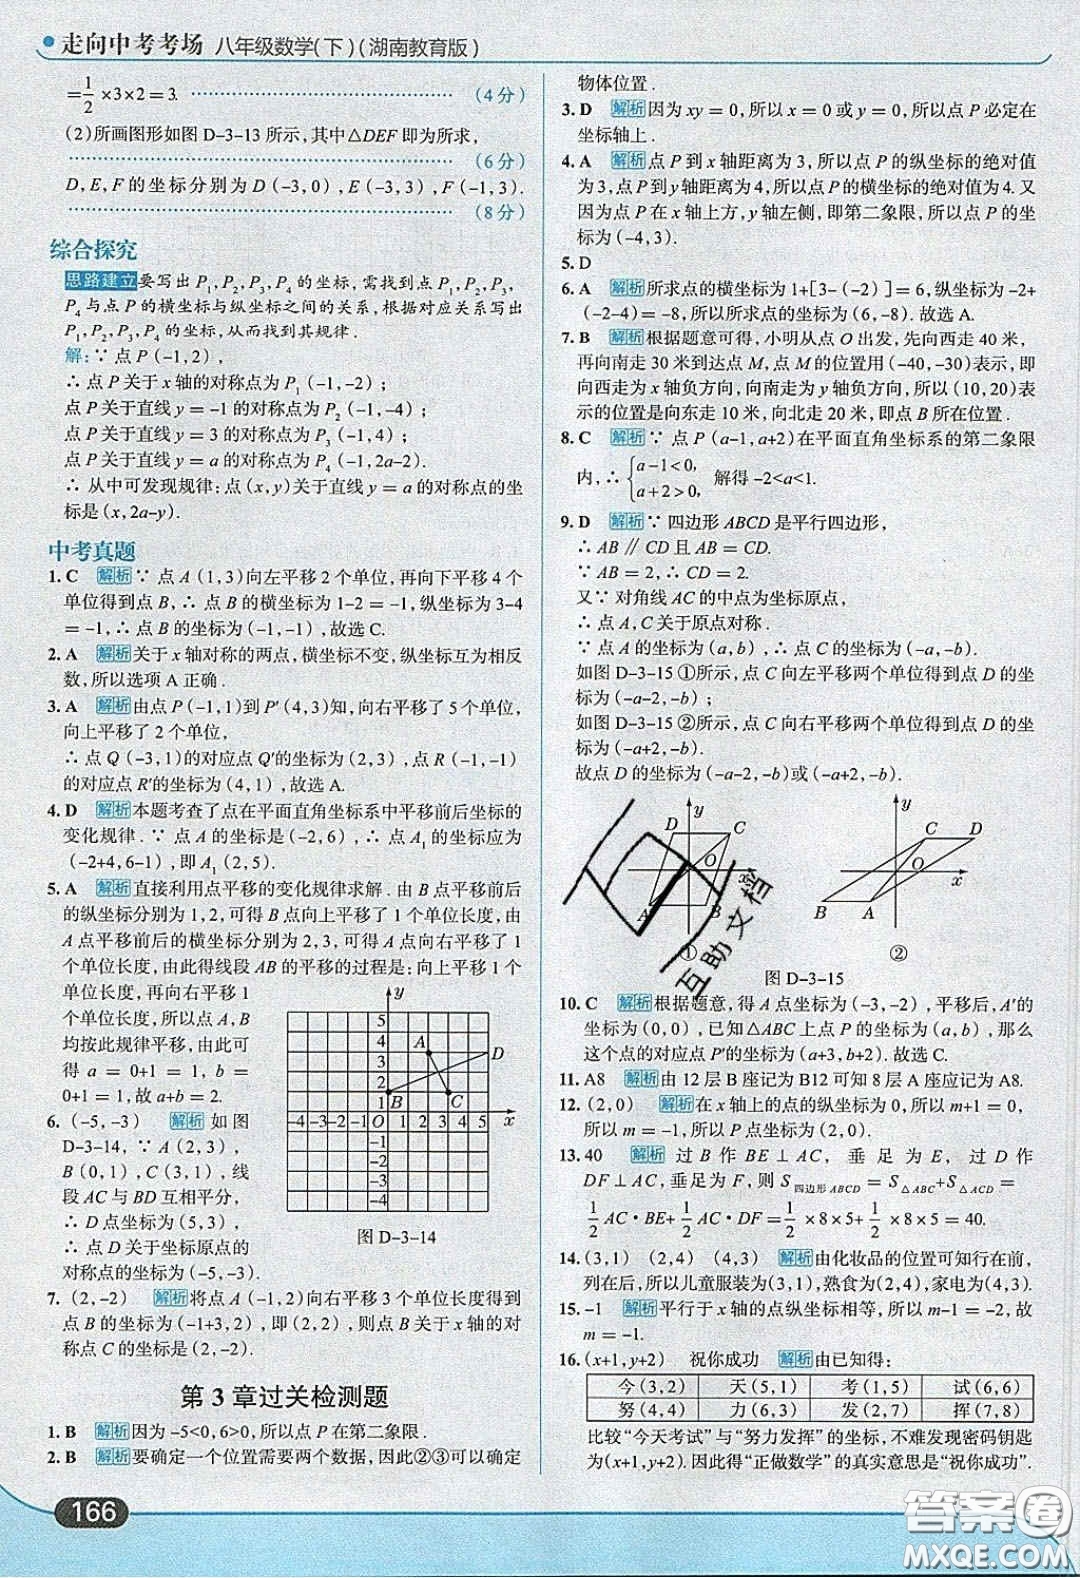 走向中考考场 八年级数学(下)(湖南教育版)
=1/2×3×2=3. (4分)
(2)所画图形如图 D-3-13 所示,其中△DEF 即为所求,
(6分)
D,E,F 的坐标分别为 D(-3,0),E(-3,3),F(-1,3).
(8分)
综合探究
思路建立 要写出 P₁,P₂,P₃,P₄ 的坐标,需找到点 P₁,P₂,P₃,
P₄ 与点 P 的横坐标与纵坐标之间的关系,根据对应关系写出
P₁,P₂,P₃,P₄ 的坐标,从而找到其规律.
解:∵ 点 P(-1,2),
∴ 点 P 关于 x 轴的对称点为 P₁(-1,-2);
点 P 关于直线 y=-1 的对称点为 P₂(-1,-4);
点 P 关于直线 y=3 的对称点为 P₃(-1,4);
点 P 关于直线 y=a 的对称点为 P₄(-1,2a-2).
∴ 从中可发现规律:点(x,y)关于直线 y=a 的对称点的坐
标是(x,2a-y).
中考真题
1. C 解析 ∵ 点 A(1,3)向左平移 2 个单位,再向下平移 4 个
单位得到点 B,∴ 点 B 的横坐标为 1-2=-1,纵坐标为 3-4
=-1,∴ 点 B 的坐标为(-1,-1),故选 C.
2. A 解析 关于 x 轴对称的两点,横坐标不变,纵坐标互为相反
数,所以选项 A 正确.
3. A 解析 由点 P(-1,1)到 P′(4,3)知,向右平移了 5 个单位,
向上平移了 2 个单位,
∴ 点 Q(-3,1)的对应点 Q′的坐标为(2,3),点 R(-1,-1)
的对应点 R′的坐标为(4,1),故选 A.
4. D 解析 本题考查了点在平面直角坐标系中平移前后坐标的
变化规律.∵ 点 A 的坐标是(-2,6),∴ 点 A₁ 的坐标应为
(-2+4,6-1),即 A₁(2,5).
5. A 解析 直接利用点平移的变化规律求解.由 B 点平移前后
的纵坐标分别为 1,2,可得 B 点向上平移了 1 个单位长度,由
A 点平移前后的横坐标分别为 2,3,可得 A 点向右平移了 1
个单位长度,由此得线段 AB 的平移的过程是:向上平移 1 个
单位长度,再向右平移 1
个单位长度,所以点 A,B
均按此规律平移,由此可
得 a=0+1=1, b=
0+1=1,故 a+b=2.
6. (-5,-3) 解析 如图
D-3-14, ∵ A(2,3),
B(0,1), C(3,1), 线
段 AC 与 BD 互相平分,
∴ D 点坐标为(5,3),
∴ 点 D 关于坐标原点的
对称点的坐标为(-5,-3).
y
5
4
3
2
1
A
B
C
D
-4 -3 -2 -1 O 1 2 3 4 5 x
-1
-2
-3
-4
图 D-3-14
7. (2,-2) 解析 将点 A(-1,2)向右平移 3 个单位长度得到
点 B 的坐标为(-1+3,2),即(2,2),则点 B 关于 x 轴的对
称点 C 的坐标是(2,-2).
第 3 章过关检测题
1. B 解析 因为-5<0,6>0,所以点 P 在第二象限.
2. B 解析 要确定一个位置需要两个数据,因此②③可以确定
166
物体位置.
3. D 解析 因为 xy=0,所以 x=0 或 y=0,所以点 P 必定在
坐标轴上.
4. A 解析 点 P 到 x 轴距离为 3,所以点 P 的纵坐标的绝对值
为 3,点 P 到 y 轴距离为 4,所以点 P 的横坐标的绝对值为 4.又
因为点 P 在 x 轴上方,y 轴左侧,即第二象限,所以点 P 的坐
标为(-4,3).
5. D
6. A 解析 所求点的横坐标为 1+[3-(-2)]=6,纵坐标为-2+
(-2-4)=-8,所以所求点的坐标为(6,-8).故选 A.
7. B 解析 根据题意可得,小明从点 O 出发,先向西走 40 米,
再向南走 30 米到达点 M,点 M 的位置用(-40,-30)表示,即
向西走为 x 轴负方向,向南走为 y 轴负方向,所以(10,20)表
示的位置是向东走 10 米,向北走 20 米,即点 B 所在位置.
8. C 解析 ∵ 点 P(a-1,a+2)在平面直角坐标系的第二象限
内,∴ {a-1<0, a+2>0, 解得-2<a<1.
9. D 解析 ∵ 四边形 ABCD 是平行四边形,
∴ AB∥CD 且 AB=CD.
∵ AB=2,∴ CD=2.
又∵ 对角线 AC 的中点为坐标原点,
∴ 点 A,C 关于原点对称.
∵ 点 A 的坐标为(a,b),∴ 点 C 的坐标为(-a,-b).
如图 D-3-15①所示,点 C 向左平移两个单位得到点 D 的坐
标为(-a-2,-b);
如图 D-3-15②所示,点 C 向右平移两个单位得到点 D 的坐
标为(-a+2,-b).
故点 D 的坐标为(-a-2,-b)或(-a+2,-b).
y
D
C
O
A
B
①
y
C
D
O
x
B
A
②
互助文档
图 D-3-15
10. C 解析 根据题意,得 A 点坐标为(-3,-2),平移后,A′的
坐标为(0,0),已知△ABC 上点 P 的坐标为(a,b),那么
这个点的对应点 P′的坐标为(a+3,b+2).故选 C.
11. A8 解析 由 12 层 B 座记为 B12 可知 8 层 A 座应记为 A8.
12. (2,0) 解析 在 x 轴上的点的纵坐标为 0,所以 m+1=0,
所以 m=-1,所以 P 点坐标为(2,0).
13. 40 解析 过 B 作 BE⊥AC, 垂足为 E, 过 D 作
DF⊥AC,垂足为 F,则 S四边形ABCD=S△ABC+S△ACD=
1/2 AC·BE+1/2 AC·DF=1/2×8×5+1/2×8×5=40.
14. (3,1) (2,4) (4,3) 解析 由化妆品的位置可知行在前,
列在后,所以儿童服装为(3,1),熟食为(2,4),家电为(4,3).
15. -1 解析 平行于 x 轴的点纵坐标相等,所以 m-1=-2,故
m=-1.
16. (x+1,y+2) 祝你成功 解析 由已知得:
今(3,2) 天(5,1) 考(1,5) 试(6,6)
努(4,4) 力(6,3) 发(2,7) 挥(7,8)
比较“今天考试”与“努力发挥”的坐标,不难发现密码钥匙
为(x+1,y+2).因此得“正做数学”的真实意思是“祝你成功”.
答案圈
MXQE.COM